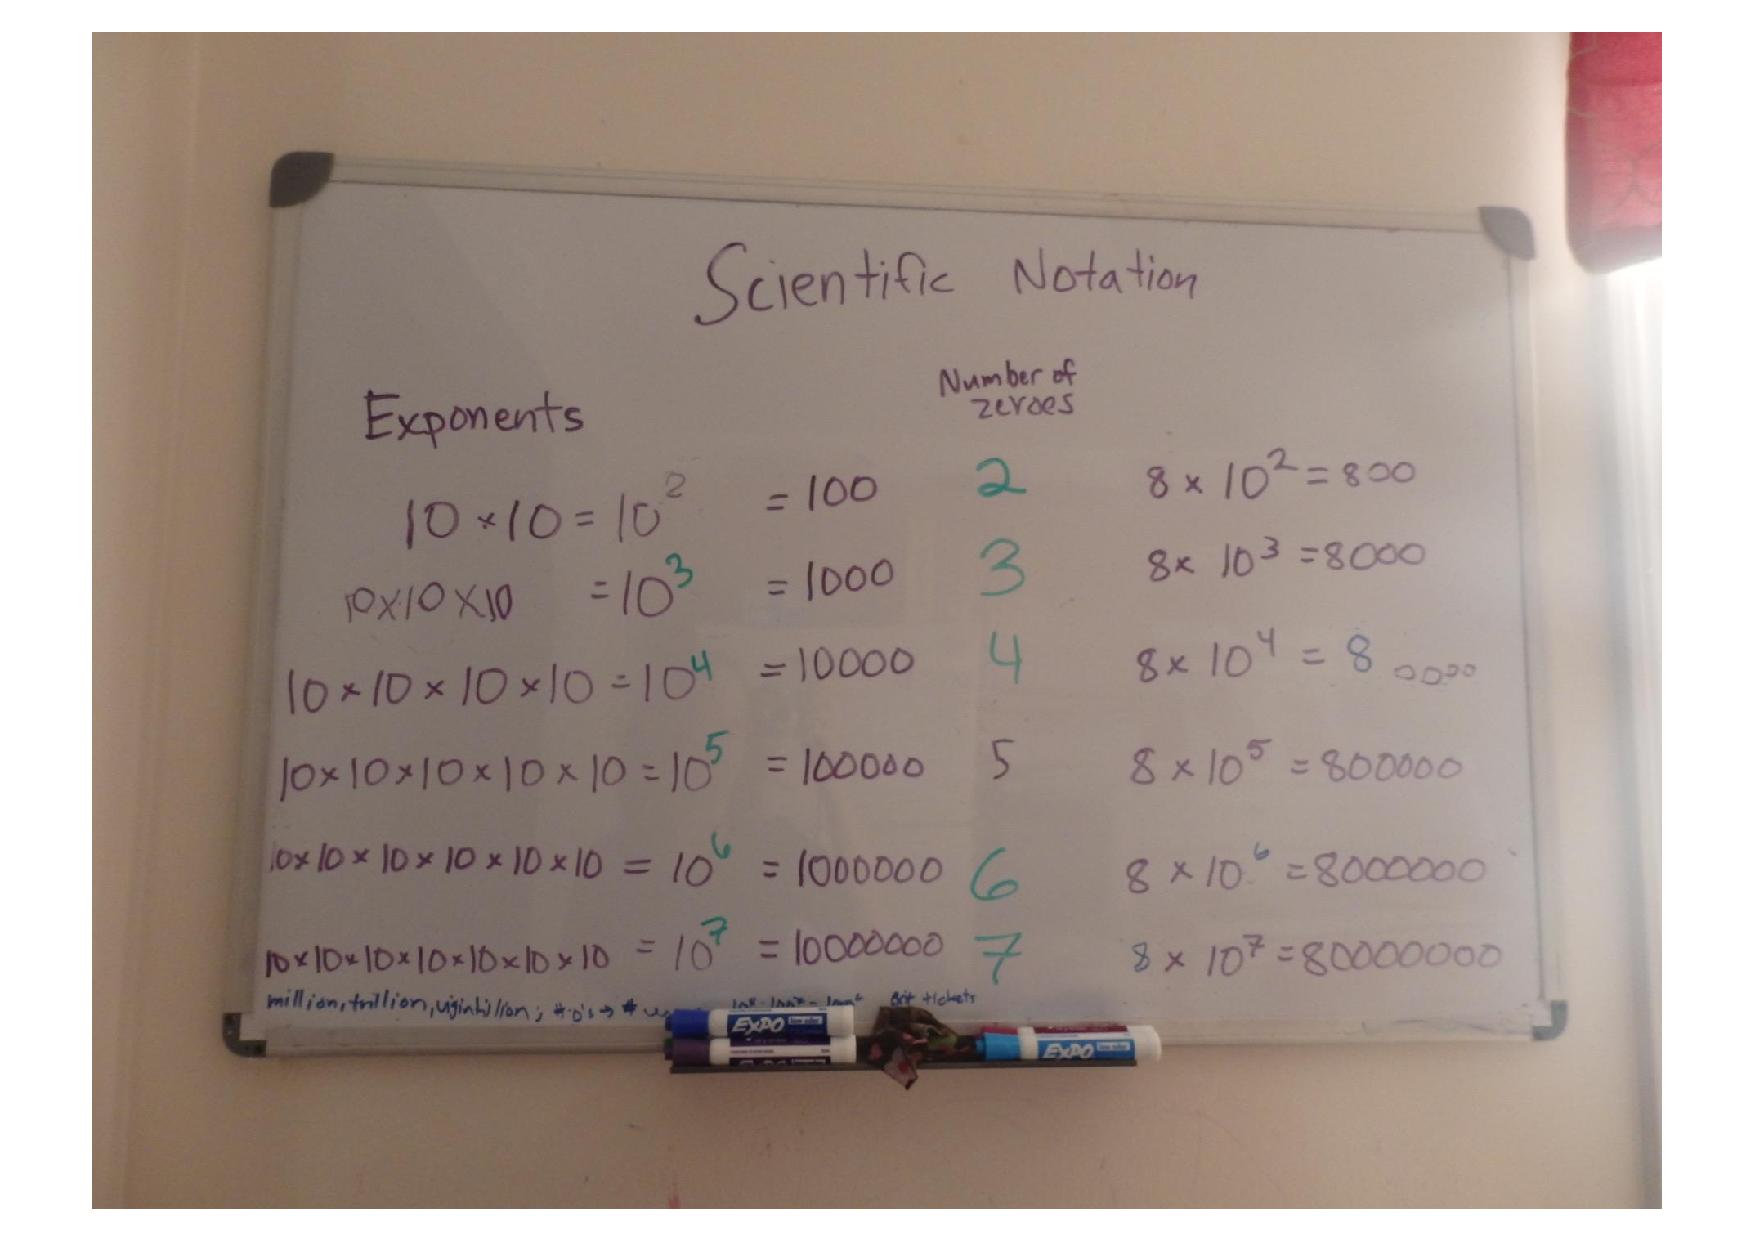 Scientific Notation
Number of
zeroes
Exponents
10 × 10 = 10² = 100 2 8 × 10² = 800
10×10×10 = 10³ = 1000 3 8× 10³ = 8000
10 × 10 × 10 × 10 = 10⁴ = 10000 4 8 × 10⁴ = 8 0000
10×10×10×10×10 = 10⁵ = 100000 5 8 × 10⁵ = 800000
10×10×10×10×10×10 = 10⁶ = 1000000 6 8 × 10⁶ = 8000000
10×10×10×10×10×10×10 = 10⁷ = 10000000 7 8 × 10⁷ = 80000000
million, trillion, viginbillion; # 0's → # tickets
EXPO
EXPO
EXPO